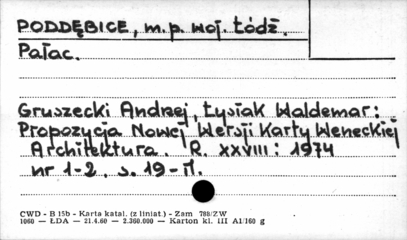 PODDĘBICE, m.p. woj. Łódź.
Pałac.
Gruszecki Andrzej, Łysiak Waldemar:
Propozycja Nowej Wersji Karty Weneckiej
Architektura. R. XXVIII: 1974
nr 1-2. s. 19-il.
CWD - B 15b - Karta katal. (z liniat.) - Zam 788/ZW
1060 — ŁDA — 21.4.60 — 2.360.000 — Karton kl. III A1/160 g